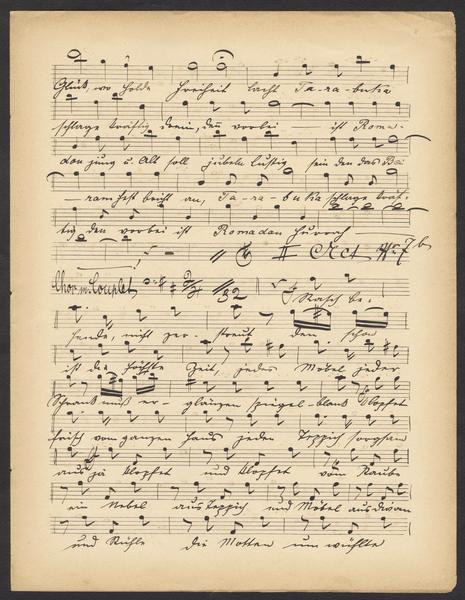 Glück, wo holde Freiheit lacht Ta-ra-buka
schlage kräftig drein, denn vorbei ist Roma-
dan jung u. Alt soll jubeln lustig sein den das Bai
ramfest bricht an, Ta-ra-buka schlage kräf-
tig den vorbei ist Romadan hurrah
II Act No 7b
Chor u. Couplet 32 Rasch be-
hende, nicht zer- streut den schon
ist die höchste Zeit, jedes Möbel jeder
Schrank muß er- glänzen spiegel-blank Klopfet
frisch vom ganzen Haus jeden Teppich sorgsam
aus ja Klopfet und Klopfet vom Staube
ein Nebel aus Teppich und Möbel aus Divan
und Stühle die Motten um wühlte